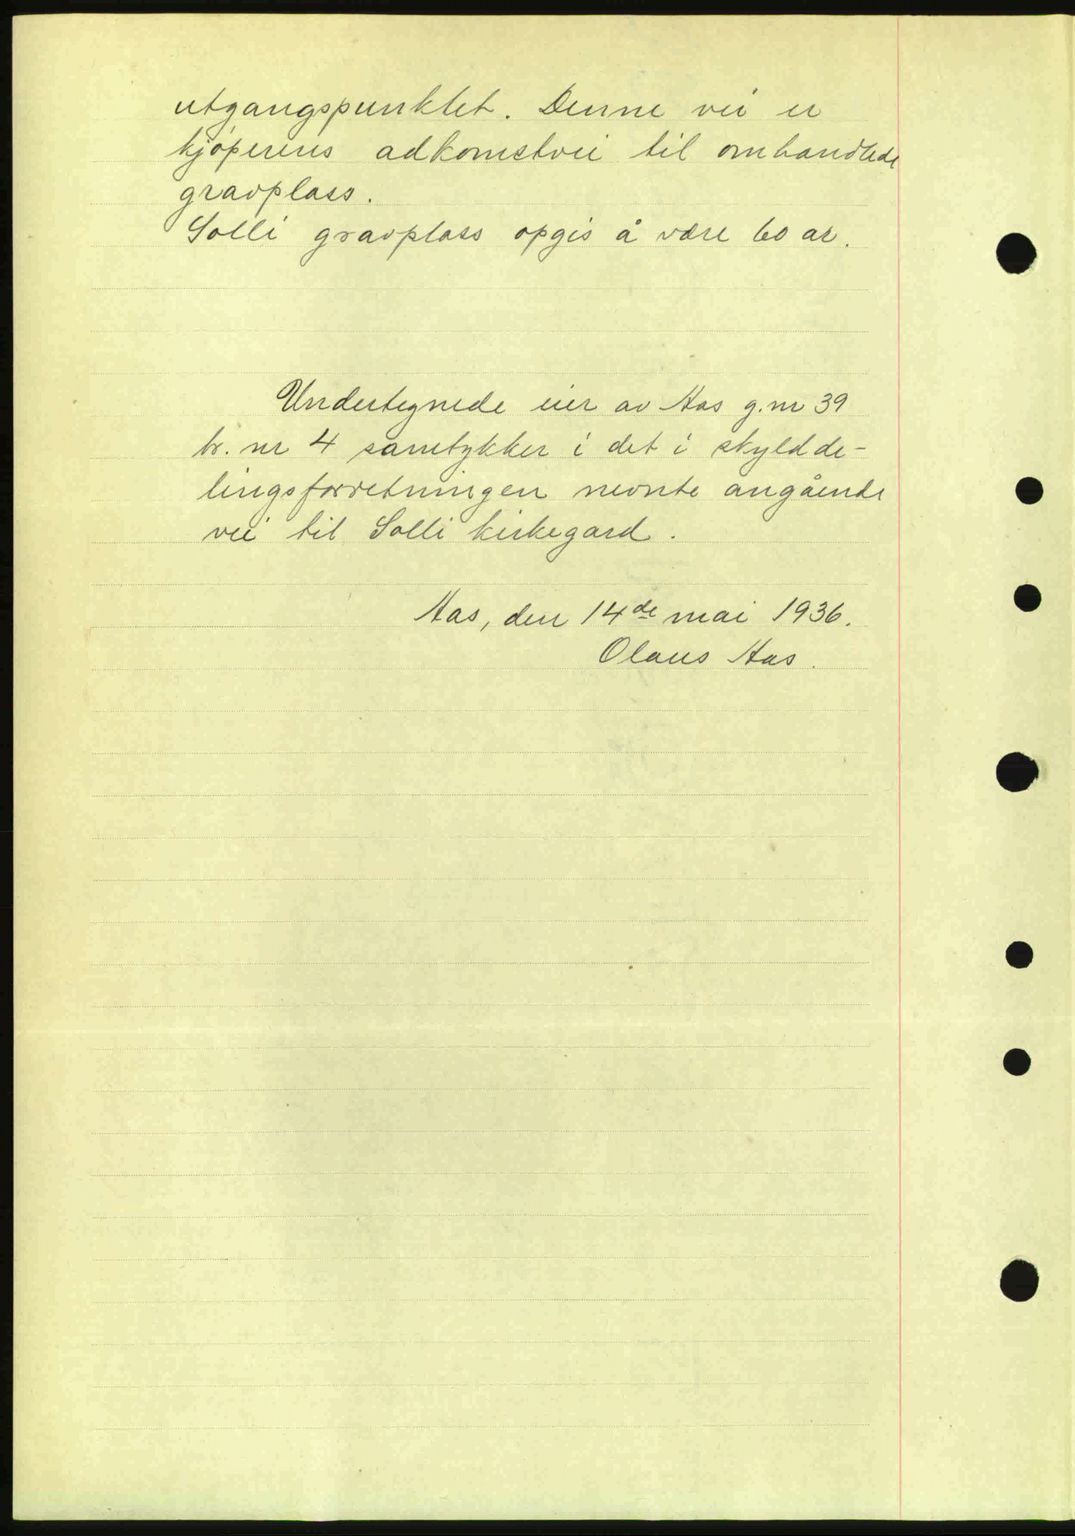 utgangspunktet. Denne vei er
kjøperens adkomstvei til omhandlede
gravplass.
Solli gravplass opgis å være 60 ar.
Undertegnede eier av Aas g.nr 39
br. nr 4 samtykker i det i skyldde-
lingsforretningen nevnte angående
vei til Solli kirkegard.
Aas, den 14de mai 1936.
Olaus Aas.